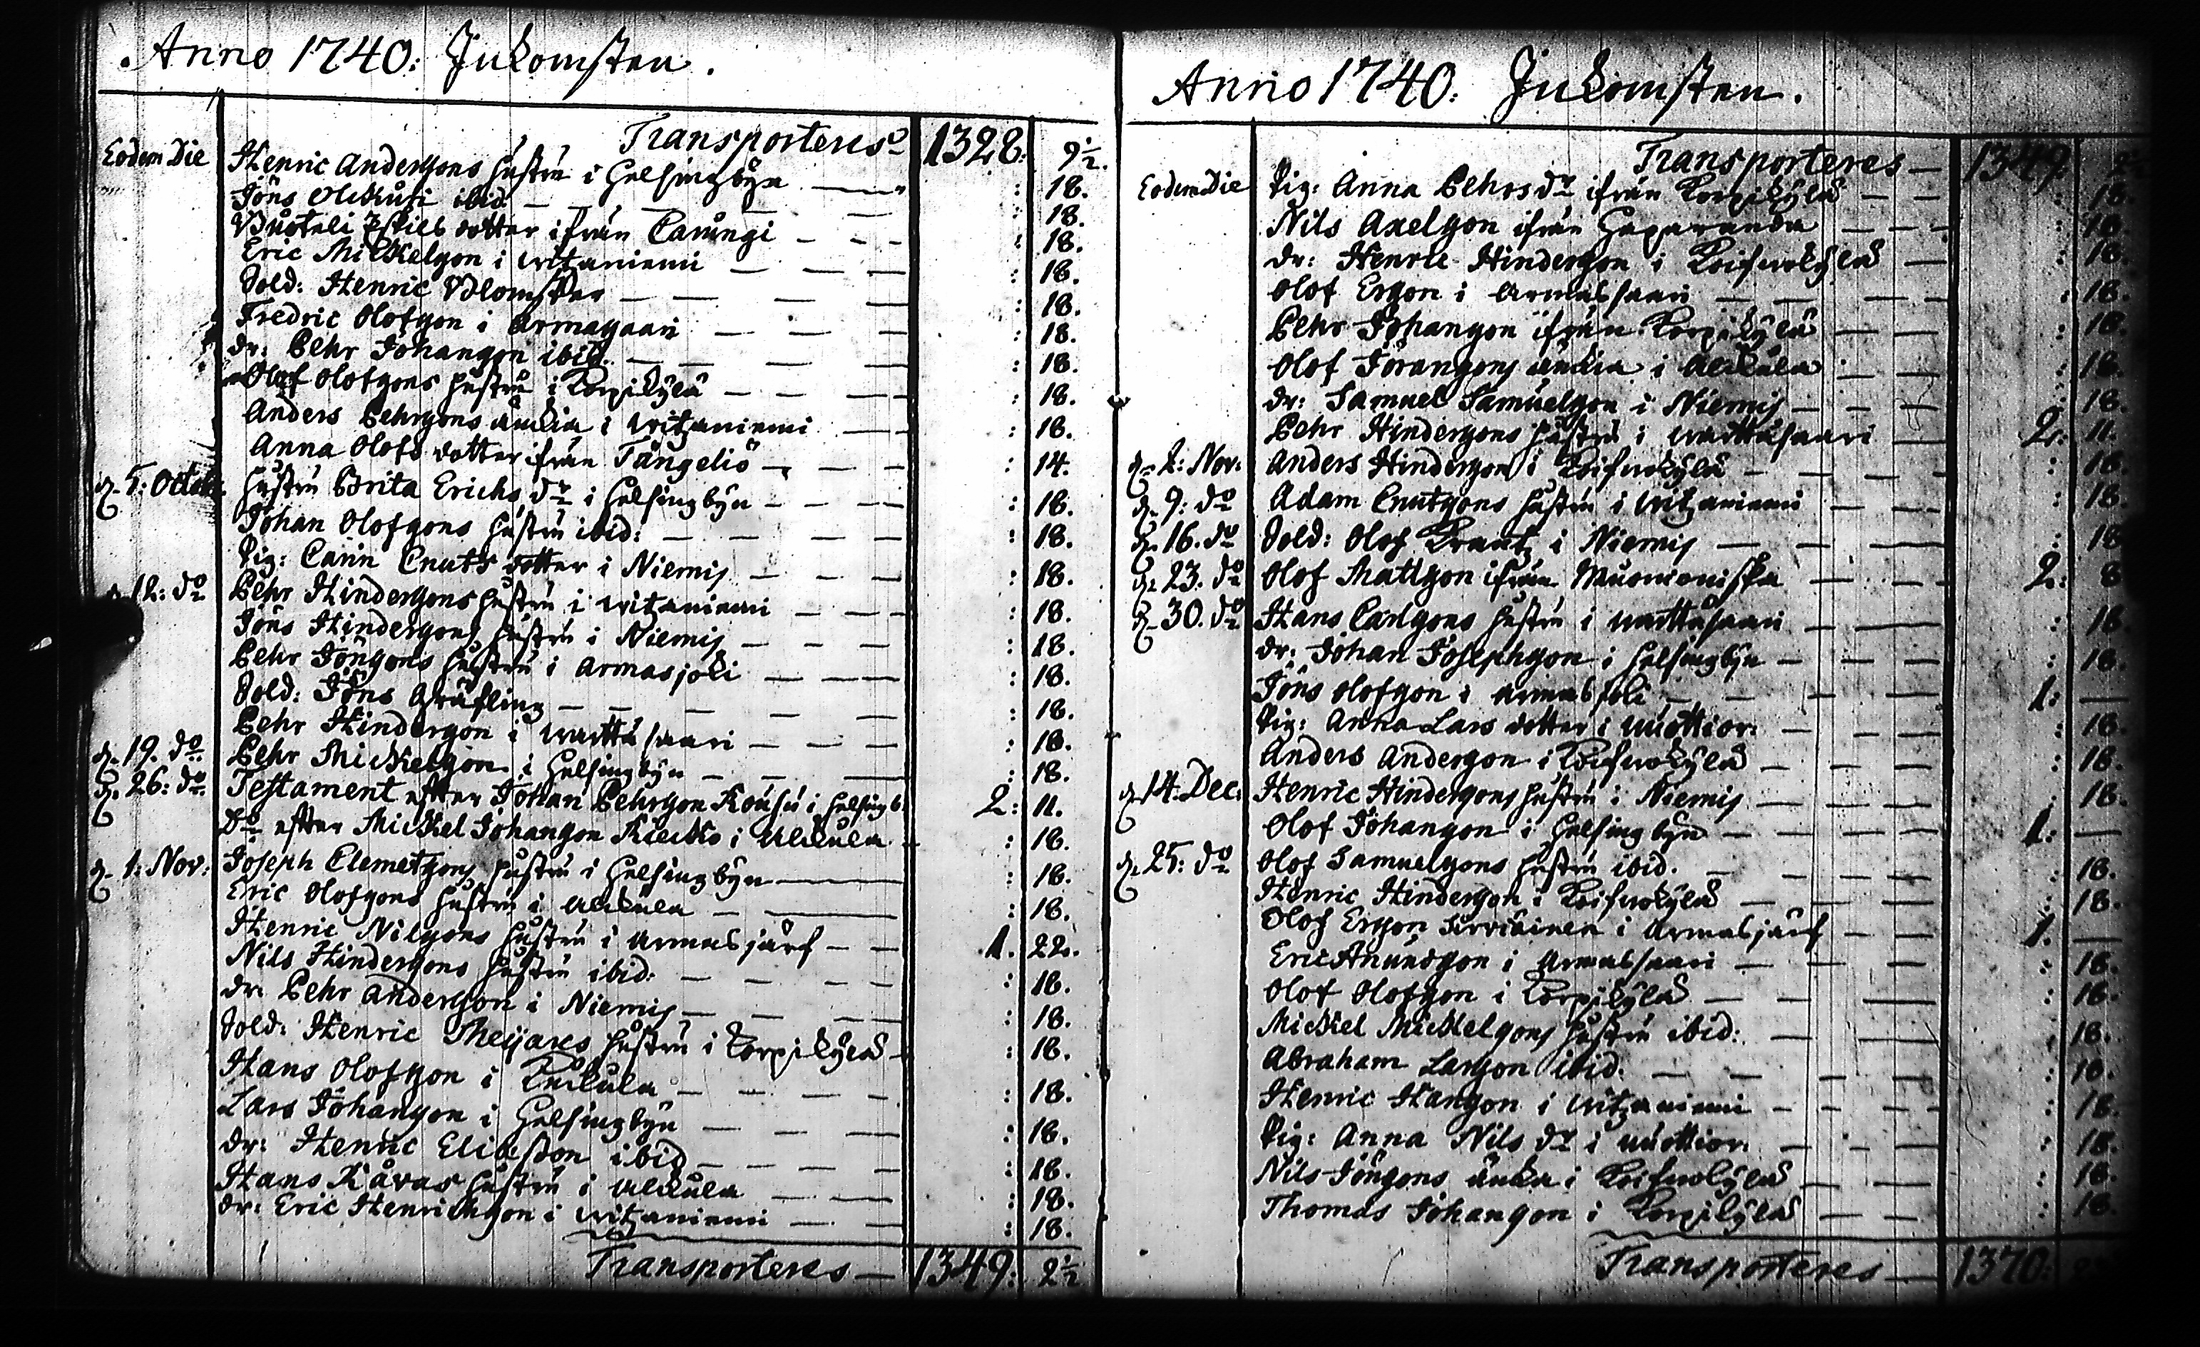 Anno 1740: Inkomsten.
Transporteres 1328: 9½.
Eodem Die Henric Anderssons hustru i Helsingbyn : 18.
Jöns Olikuri ibid : 18.
Eskils dotter ifrån Carungi : 18.
Eric Mickelsson i Witzaniemi : 18.
Sold: Henric Blomster : 18.
Fredric Olofsson i Armasaari : 18.
dr: Pehr Johansson ibid. : 18.
Olof Olofssons hustru i Korpikylä : 18.
Anders Pehrssons änkia i Witzaniemi : 18.
Anna Olofs dotter ifrån Tängeliö : 14.
d. 5: Octob. hustru Brita Erichs dr i Helsingbyn : 18.
Johan Olofssons hustru ibid: : 18.
Pig: Carin Cnuts dotter i Niemis : 18.
d. 12: do Pehr Hinderssons hustru i Witzaniemi : 18.
Jöns Hinderssons hustru i Niemis : 18.
Pehr Jönssons hustru i Armasjoki : 18.
Sold: Jöns Gräfling : 18.
Pehr Hindersson i Marttasaari : 18.
d. 19. do Pehr Mickelsson i Helsingbyn : 18.
d. 26: do Testament efter Johan Pehrsson Kousu i Helsingb. 2: 11.
Do efter Mickel Johansson i Alkkula : 18.
d. 1: Nov: Joseph Clemetssons hustru i Helsingbyn : 18.
Eric Olofssons hustru i Alkkula : 18.
Henric Nilssons hustru i Armasjärf 1. 22.
Nils Hinderssons hustru ibid: : 18.
dr: Pehr Andersson i Niemis : 18.
Sold: Henric Meijares hustru i Korpikylä : 18.
Hans Olofsson i Kuckula : 18.
Lars Johansson i Helsingbyn : 18.
dr: Henric Eliasson ibid : 18.
Hans Kåvas hustru i Alkkula : 18.
dr: Eric Henrichsson i Witzaniemi : 18.
Transporteres 1349: 2½
Anno 1740: Inkomsten.
Transporteres 1349: 2½
Eodem Die Pig: Anna Pehrs dr ifrån Korpikylä : 18.
Nils Axelsson ifrån Haparanda : 18
dr: Henric Hindersson i Koifwokylä : 18.
Olof Ersson i Armassaari : 18.
Pehr Johansson ifrån Korpikylä : 18.
Olof Göranssons änkia i Alkkula : 18.
dr: Samuel Samuelsson i Niemis : 18.
Pehr Hinderssons hustru i Marttasaari 2: 11.
d. 2: Nov: Anders Hindersson i Koifwokylä : 18.
d. 9: do Adam Cnutssons hustru i Witzaniemi : 18.
d. 16. do Sold: Olof Krantz i Niemis : 18
d. 23. do Olof Mattsson ifrån Muonioniska 2: 8
d. 30. do Hans Carlssons hustru i Marttasaari : 18.
dr: Johan Josephsson i Helsingbyn : 18.
Jöns Olofsson i Armasjoki 1: —
Pig: Anna Lars dotter i Wuottior: : 18.
Anders Andersson i Koifwokylä : 18.
d. 14: Dec: Henric Hinderssons hustru i Niemis : 18.
Olof Johansson i Helsingbyn 1: —
d. 25: do Olof Samuelssons hustru ibid. : 18.
Henric Hindersson i Koifwokylä : 18.
Olof Ersson i Armasjärf 1. —
Eric Anundsson i Armassaari : 18.
Olof Olofsson i Korpikylä : 18.
Mickel Mickelssons hustru ibid: : 18.
Abraham Larsson ibid. : 18.
Henric Hansson i Witzaniemi : 18.
Pig: Anna Nils dr i Wuottior: : 18.
Nils Jönssons änka i Koifwokylä : 18.
Thomas Johansson i Korpikylä : 18.
Transporteres 1370: